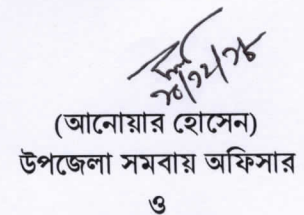 (আনোয়ার হোসেন)
উপজেলা সমবায় অফিসার
ও